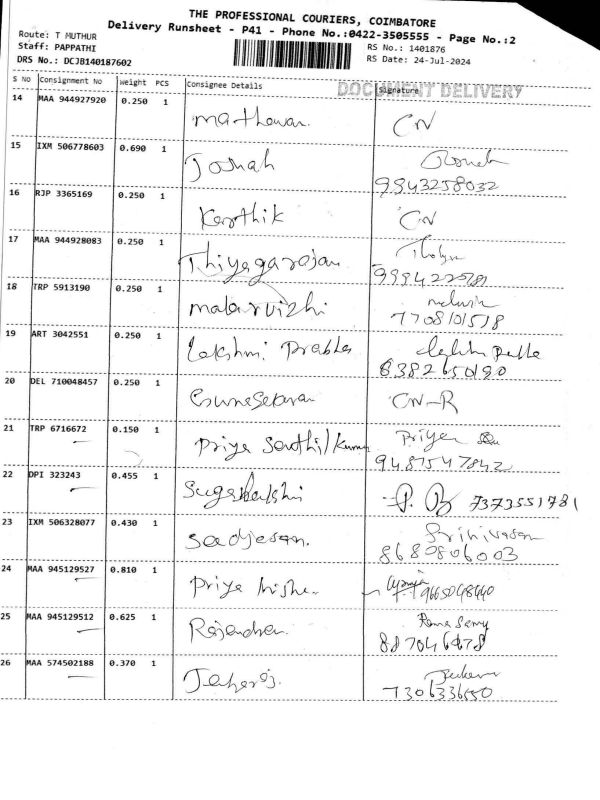 THE PROFESSIONAL COURIERS, COIMBATORE
Delivery Runsheet - P41 - Phone No.:0422-3505555 - Page No.:2
Route: T MUTHUR
Staff: PAPPATHI
RS No.: 1401876
DRS No.: DCJB140187602
RS Date: 24-Jul-2024
DOCUMENT DELIVERY
S No Consignment No Weight PCS Consignee Details Signature
14 MAA 944927920 0.250 1 CN
15 IXM 506778603 0.690 1 Joshah
9943258032
16 RJP 3365169 0.250 1 Karthik CN
17 MAA 944928083 0.250 1 Thiyagarajan
18 TRP 5913190 0.250 1 malarvizhi
7708101518
19 ART 3042551 0.250 1 Lakshmi Prabha
8382650190
20 DEL 710048457 0.250 1 CN-R
21 TRP 6716672 0.150 1 Priya Senthilkumar Priya
9487547842
22 DPI 323243 0.455 1 7373551781
23 IXM 506328077 0.430 1 Srinivasan
8680806003
24 MAA 945129527 0.810 1 Priya
25 MAA 945129512 0.625 1 Rajendran Rama Samy
26 MAA 574502188 0.370 1
7306336550